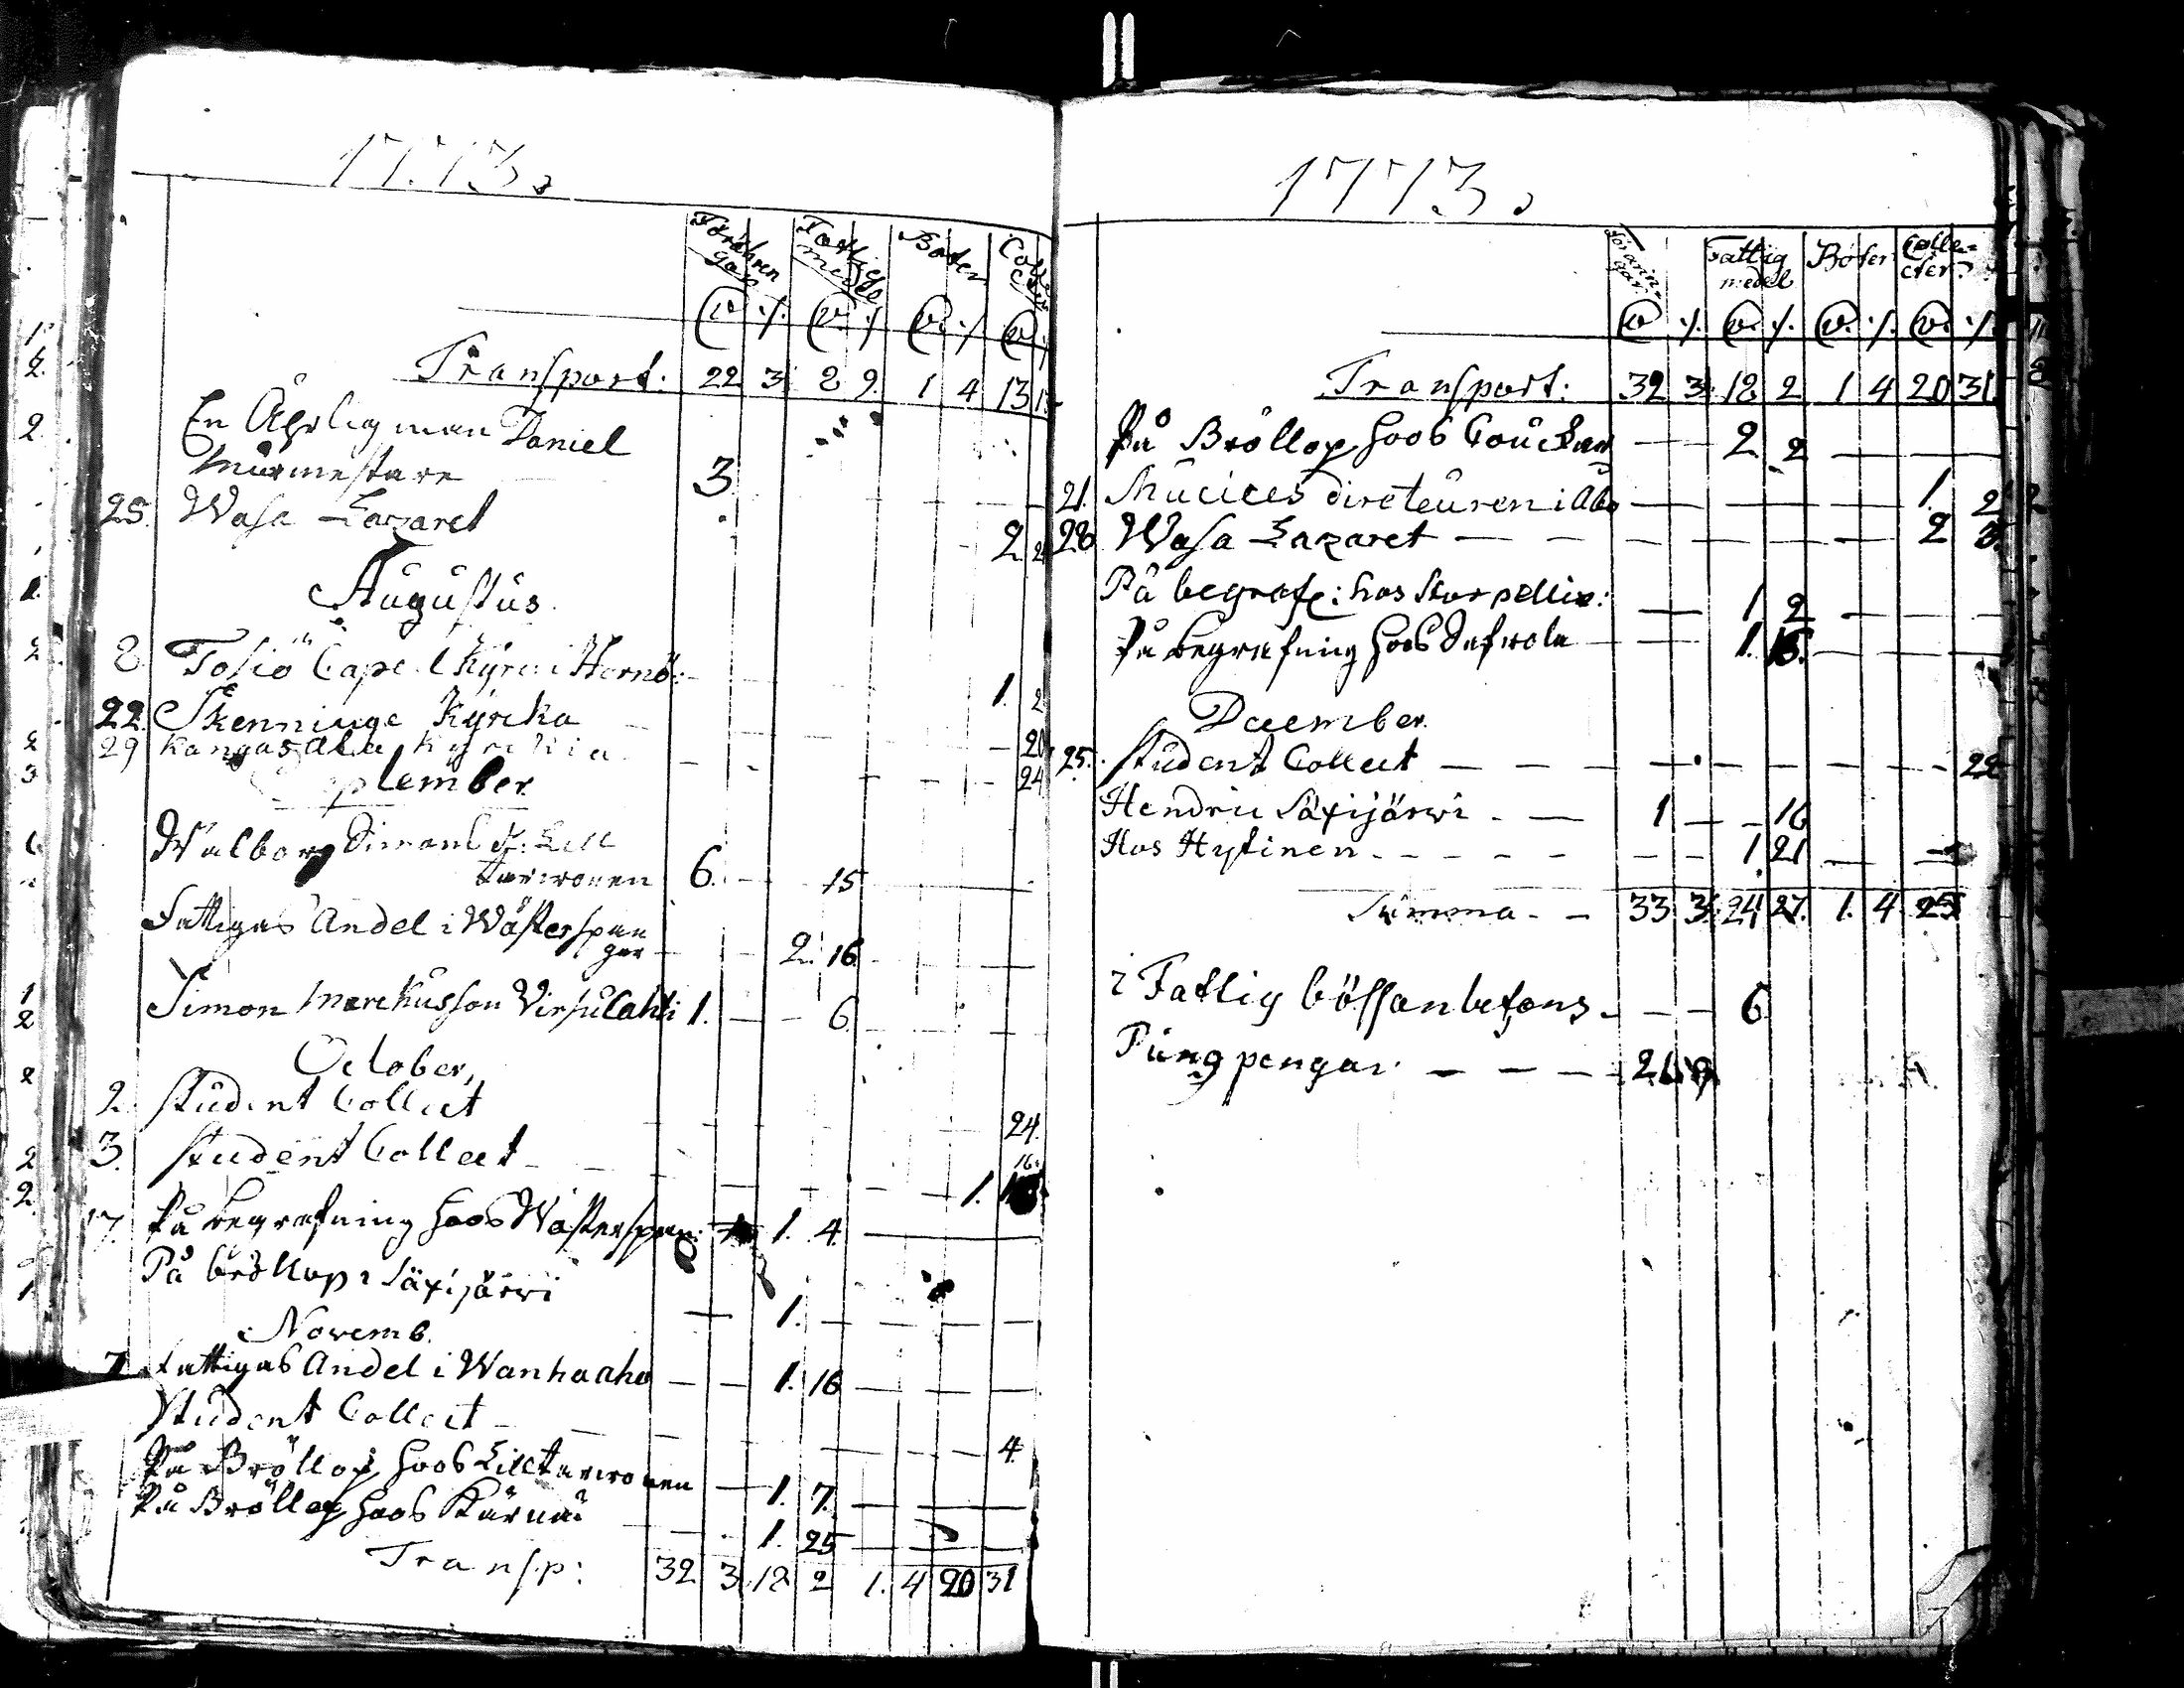 1773.
Föräringar Fattig medel Böter Collecter
v. ./. v. ./. v. ./. v. ./.
Transport: 22 3. 8 9. 1 4 13
En Ährlig man Daniel
Mürmestare 3
25. Wasa Lazaret 2
Augustus.
8 Capel Kyrc: i
1. 2
22. Skenninge Kyrcka 20
29 Kangasala Kyrckia 24
September
Walborg Simons d: Lill
tarwonen 6. 15
Fattigas Andel i Wästerspan
gar 2. 16.
Simon Marckusson Virsulahti 1. 6.
October,
2. Student Collect 24.
3. Student Collect 1. 16.
17. På begrafning hoos Wästerspan: 1. 4.
På bröllop i Säxijärwi 1.
Novemb.
7 Fattigas Andel i Wanhaaho 1. 16
Student Collect 4.
På Bröllop hoos Lilltarwonen 1. 7.
På Bröllop hoos Kärnä 1. 25
Transp: 32 3. 18 2 1. 4 20 31
1773.
Föräringar Fattig medel Böter Collecter
v. ./. v. ./. v. ./. v. ./.
Transport: 32 3. 18 2 1 4 20 31
På Bröllop hoos 2 2
21. Mucices directeuren i Åbo 1. 2
28 Wasa Lazaret 2 3.
På begrafn: hos 1 2
På begrafning hoos 1. 16.
December.
25. Student Collect 22
Hendric Säxijärwi 1 16
Hos Hytinen 1 21
Summa 33 3. 24 27. 1. 4 25
i Fattig bössan befans 6
Püng pengar